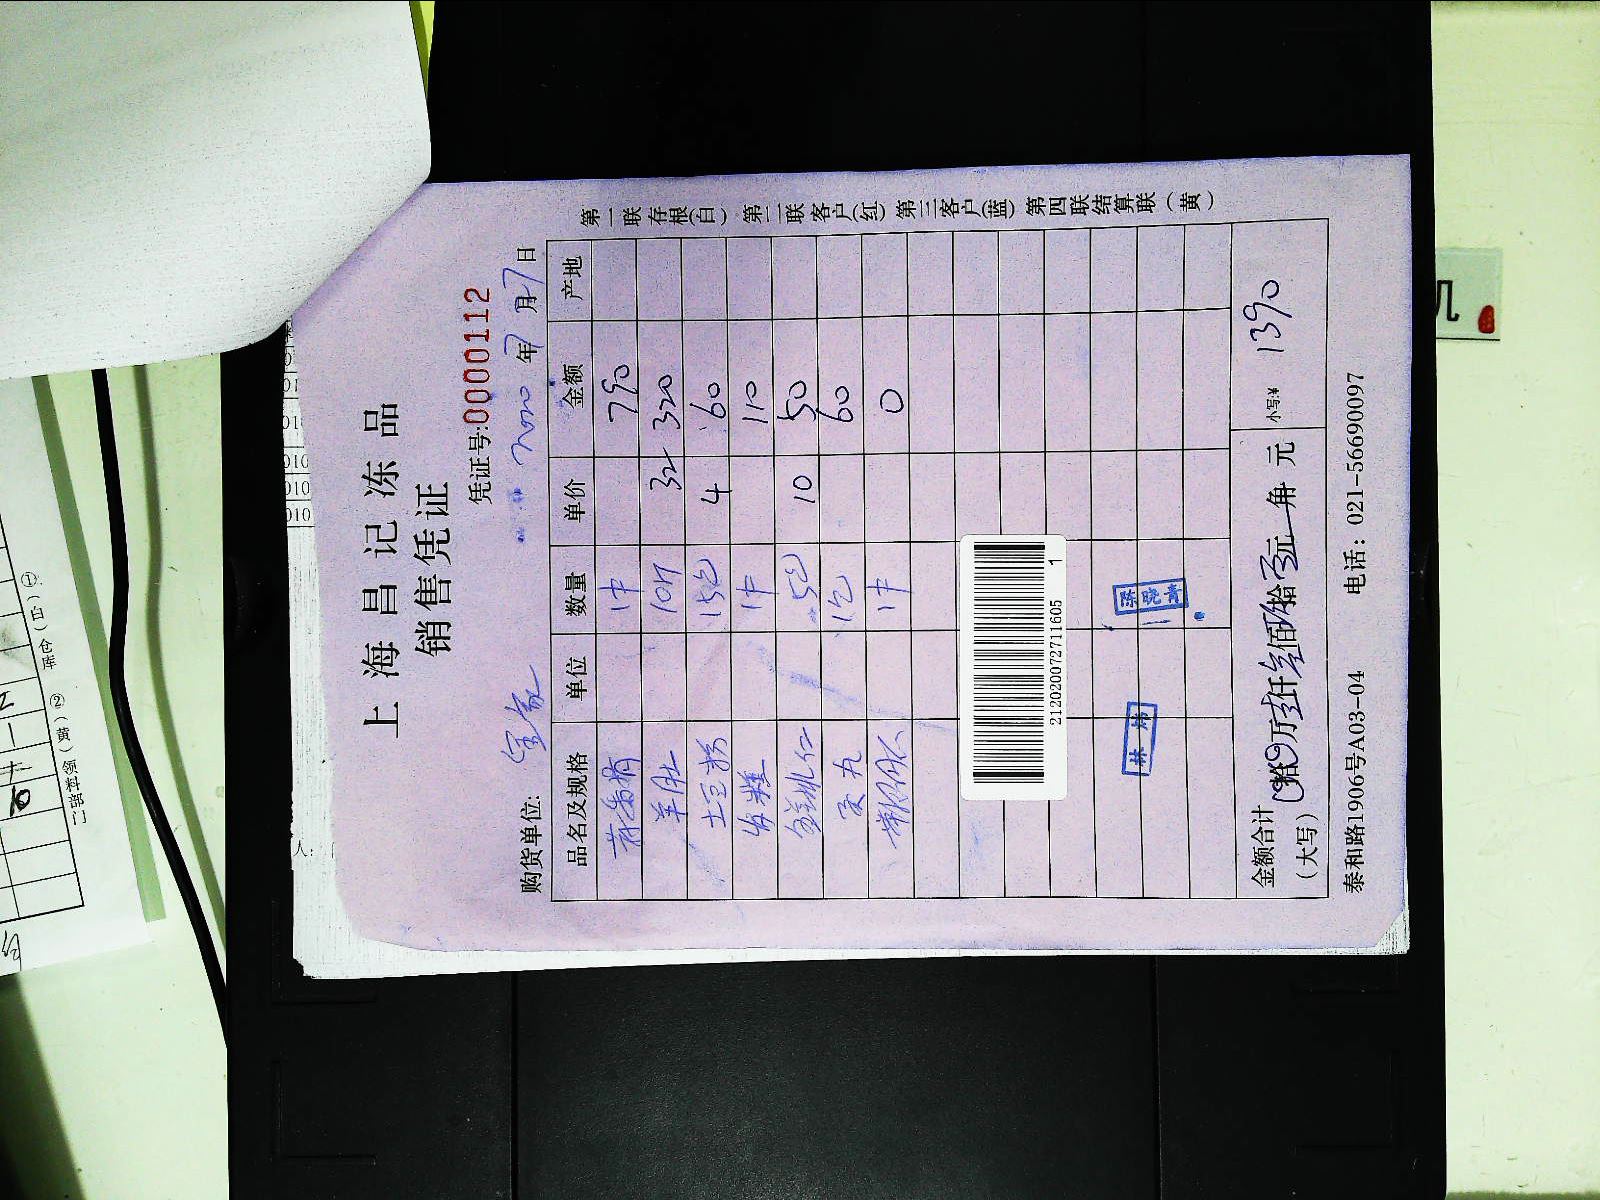 上海昌记冻品
销售凭证
凭证号:00000112
购货单位: 年7月27日
品名及规格 单位 数量 单价 金额 产地
1件 790
羊肚 10斤 32 320
土豆粉 15包 4 60
发糕 1件 110
5包 10 50
1包 60
1件 0
第一联存根(白) 第二联客户(红) 第三客户(蓝) 第四联结算联(黄)
21202007271 1605 1
林炜
陈晓青
金额合计
(大写) 拾万壹仟叁佰玖拾零元 角 元 小写:¥ 1390
泰和路1906号A03-04 电话: 021-56690097
①(白)仓库 ②(黄)领料部门
人:
010
010
010
机